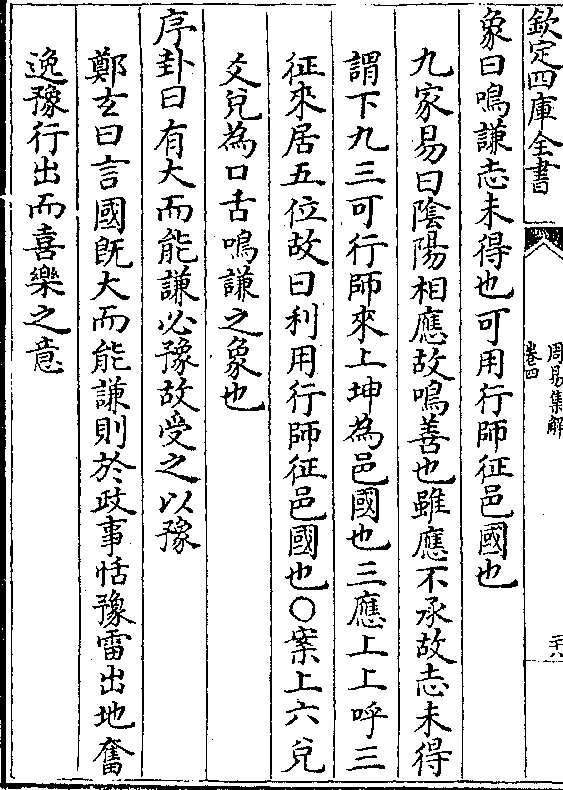 欽定四庫全書
周易集解
卷四
二十八
象曰鳴謙志未得也可用行師征邑國也
九家易曰陰陽相應故鳴善也雖應不承故志未得
謂下九三可行師來上坤為邑國也三應上上呼三
征來居五位故曰利用行師征邑國也〇案上六兌
爻兌為口舌鳴謙之象也
序卦曰有大而能謙必豫故受之以豫
鄭玄曰言國旣大而能謙則於政事恬豫雷出地奮
逸豫行出而喜樂之意